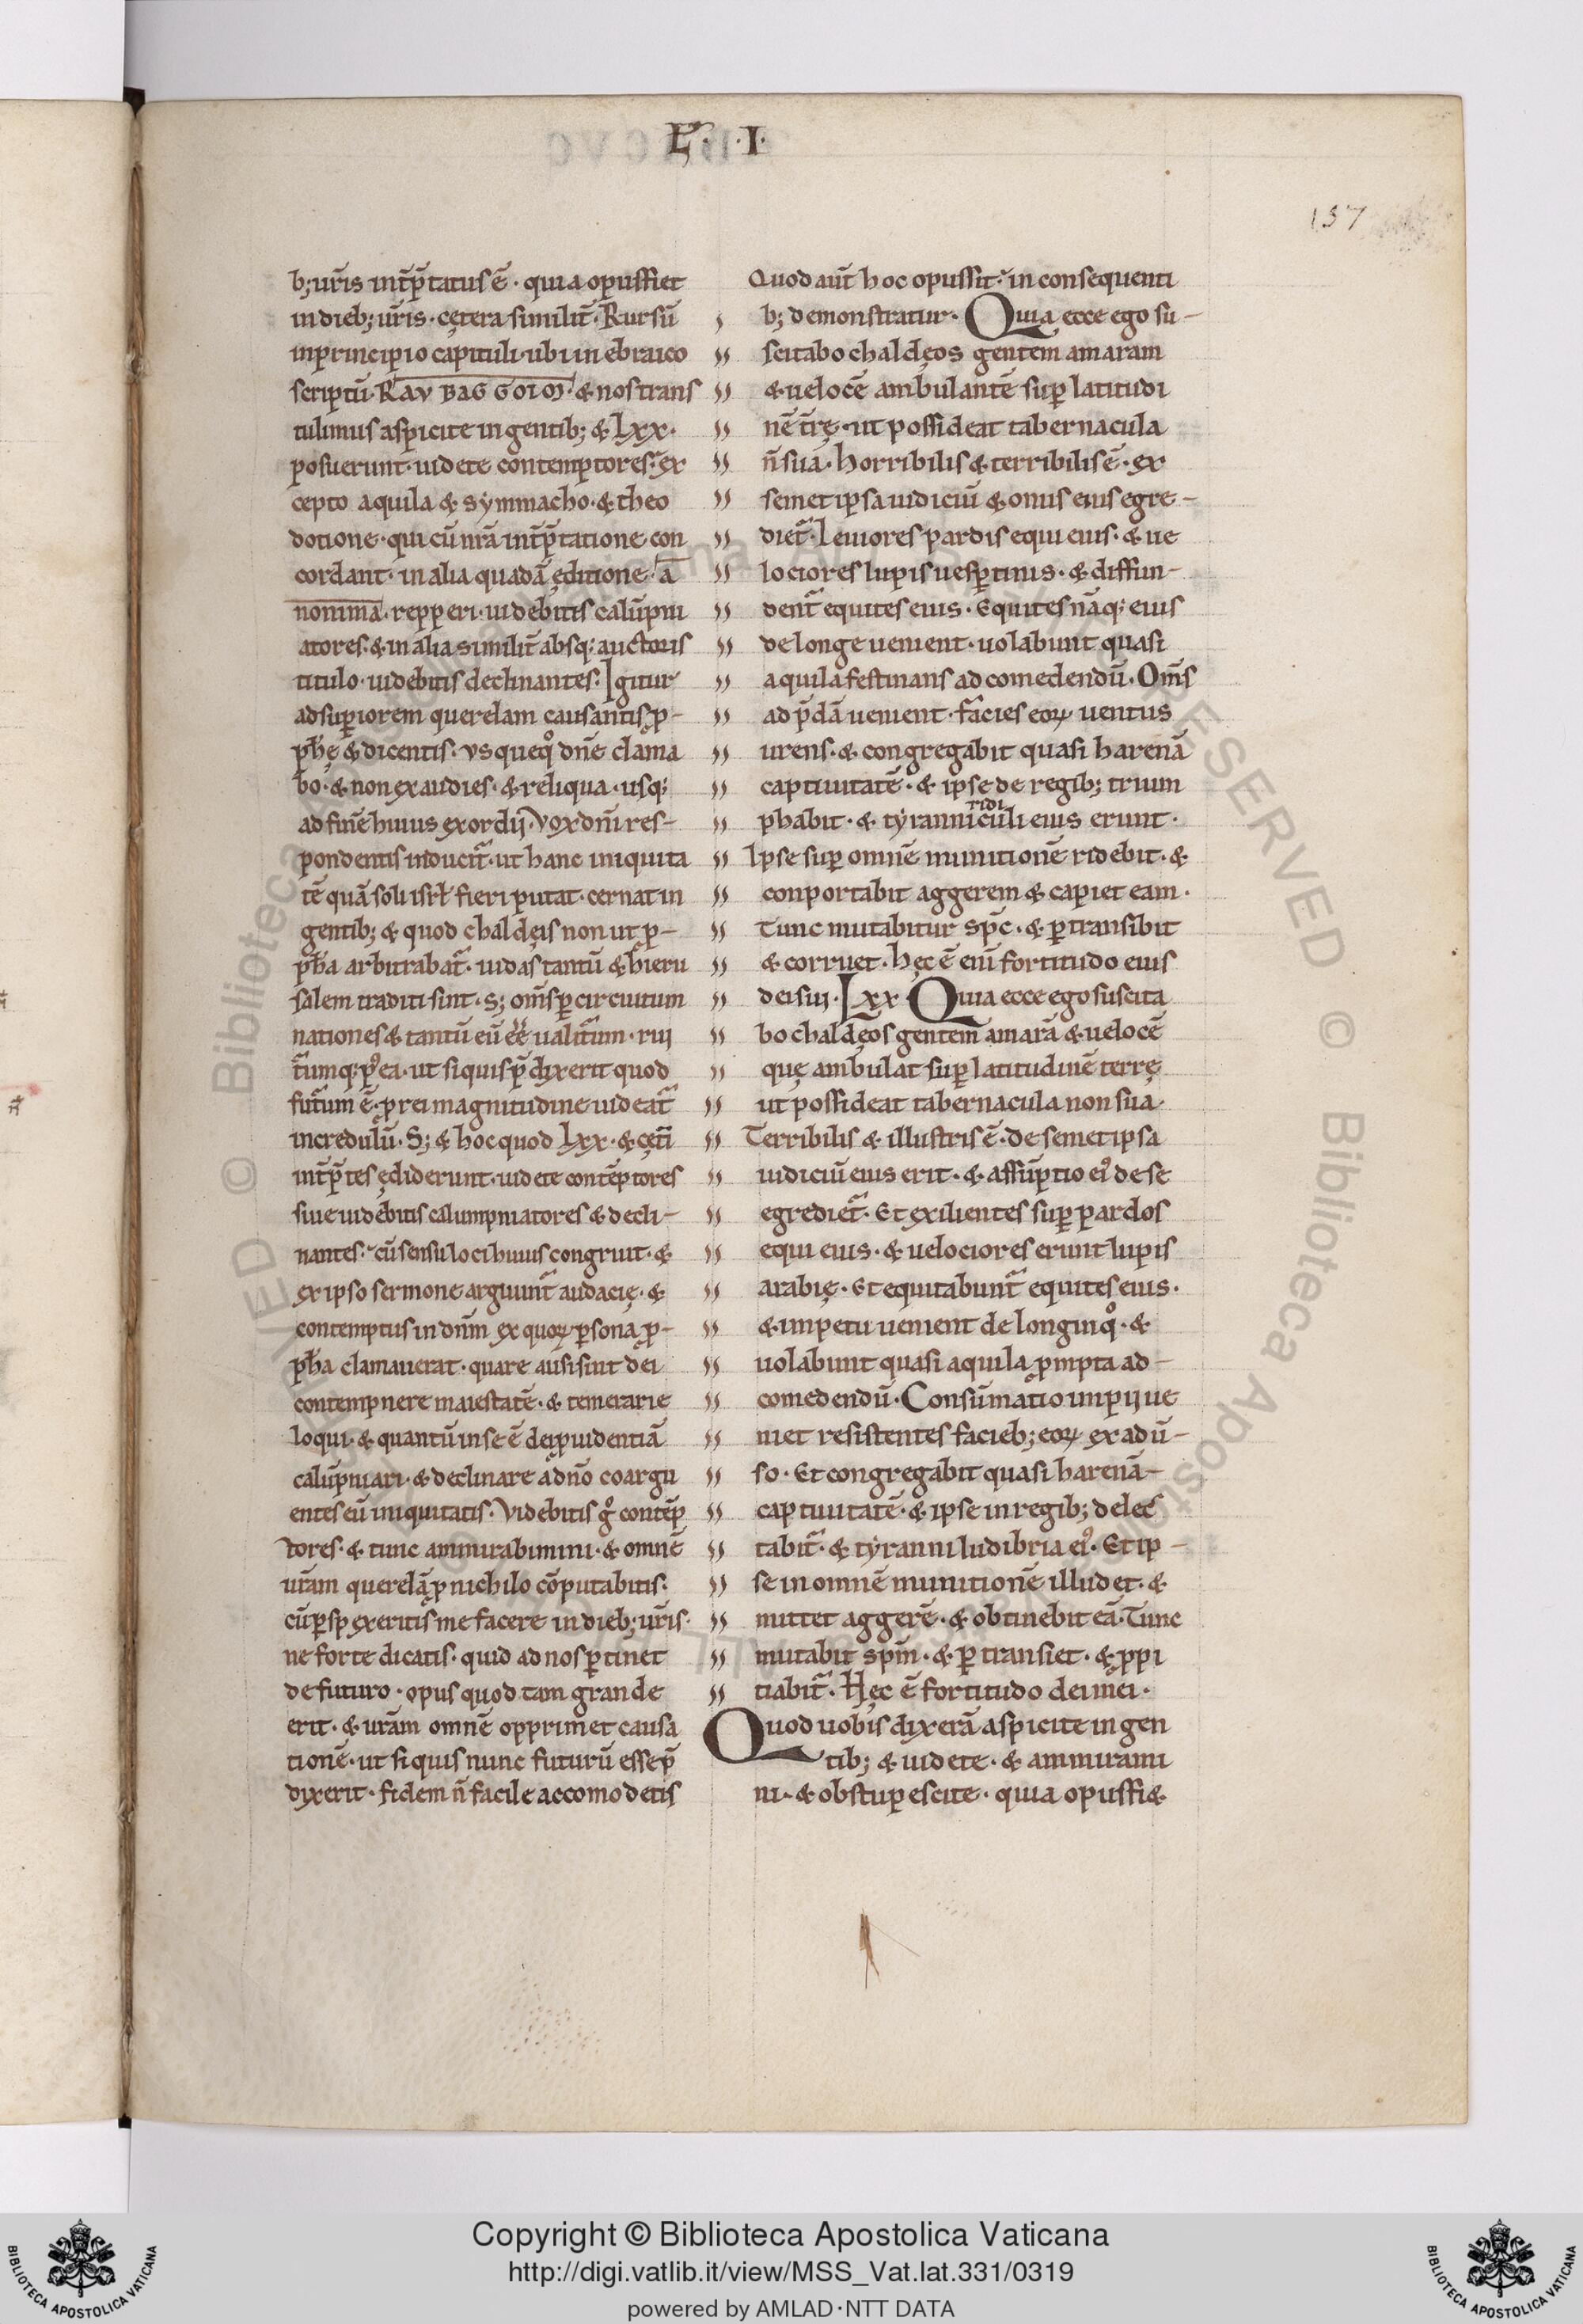 E · I ·
157
b; ur̄is int̄p̄tatus ē · quia opus fiet
in dieb; ur̄is · cętera similit̄ · Rursū
in principio capituli · ubi in ebraico
scriptū · RAV BAG GOIOM · & nos trans
tulimus aspicite in gentib; & Lxx ·
posuerunt · uidete contemptores · ex
cepto aquila & symmacho · & theo
dotione · qui cū nr̄a int̄p̄tatione con
cordant · in alia quadā ęditione · a
nonima · repperi · uidebitis calūpni
atores · & in alia similit̄ absq; auctoris
titulo · uidebitis declinantes · Igitur
ad suꝑiorem querelam causantis ꝓ-
ph̄ę & dicentis · Vsquequo dn̄e clama
bo · & non exaudies · & reliqua · usq;
ad finē huius exordij · Vox dn̄i res-
pondentis inducit̄ · ut hanc iniquita
tē quā soli isrł fieri putat · cernat in
gentib; & quod chaldęis non ut ꝓ-
ph̄a arbitrabat̄ · iudas tantū & hieru
salem traditi sint · S; om̄s ꝑ circuitum
nationes & tantū eū eē ualit̄um · rui
t̄umq; ꝑ ea · ut si quis p̄dixerit quod
fut̄um ē · p rei magnitudine uideat̄
incredulū · S; & hoc quod Lxx · & cęt̄i
int̄p̄tes ędiderunt · uidete contēptores
siue uidebitis calumpniatores & decli-
nantes · cū sensu loci huius congruit · &
ex ipso sermone arguunt̄ audacię · &
contemptus in dn̄m ex quoꝝ ꝑsona ꝓ-
ph̄a clamauerat · quare ausi sint dei
contempnere maiestatē · & temerarie
loqui · & quantū in se ē dei ꝓuidentiā
calūpniari · & declinare a dn̄o coargu
entes eū iniquitatis · Videbitis g̊ contēp
tores · & tunc ammirabimini · & omnē
ur̄am querelā ꝓ nichilo cōputabitis ·
cū ꝑspexeritis me facere in dieb; ur̄is ·
ne forte dicatis · quid ad nos ꝑtinet
de futuro · opus quod tam grande
erit · & ur̄am omnē opprimet causa
tionē · ut si quis nunc futurū esse p̄
dixerit · fidem n̄ facile accomodetis
Quod aut̄ hoc opus sit · in consequenti
b; demonstratur · Quia ecce ego su-
scitabo chaldęos gentem amaram
& uelocē ambulantē suꝑ latitudi
nē t̄rę · ut possideat tabernacula
n̄ sua · Horribilis & terribilis ē · ex
semet ipsa iudiciū & onus eius egre-
diet̄ · Leuiores pardis equi eius · & ue
lociores lupis uesꝑtinis · & diffun-
dent̄ equites eius · Equites nāq; eius
de longe uenient · uolabunt quasi
aquila festinans ad comedendū · Om̄s
ad p̄dā uenient · facies eoꝝ uentus
urens · & congregabit quasi harenā
captiuitatē · & ipse de regib; trium
phabit · & tyranni ridiculi eius erunt ·
Ipse suꝑ omnē munitionē ridebit · &
conportabit aggerem & capiet eam ·
Tunc mutabitur sp̄c · & ꝑtransibit
& corruet · Hęc ē enī fortitudo eius
dei sui · Lxx Quia ecce ego suscita
bo chaldęos gentem amarā & uelocē
quę ambulat suꝑ latitudinē terrę
ut possideat tabernacula non sua
Terribilis & illustris ē · de semet ipsa
iudiciū eius erit · & assūptio ei᾽ de se
egrediet̄ · Et exilientes suꝑ pardos
equi eius · & uelociores erunt lupis
arabię · Et equitabunt̄ equites eius ·
& impetu uenient de longinq̊ · &
uolabunt quasi aquila ꝓmpta ad-
comedendū · Consūmatio impij ue
niet resistentes facieb; eoꝝ ex adū-
so · Et congregabit quasi harenā-
captiuitatē · & ipse in regib; delec
tabit̄ · & tyranni ludibria ei᾽ · Et ip-
se in omnē munitionē illudet · &
mittet aggerē · & obtinebit eā · Tunc
mutabit sp̄m · & ꝑtransiet · & ꝓpi
tiabit̄ · Hęc ē fortitudo dei mei ·
Quod uobis dixerā aspicite in gen
tib; & uidete · & ammirami
ni · & obstupescite · quia opus fi&
Copyright © Biblioteca Apostolica Vaticana
http://digi.vatlib.it/view/MSS_Vat.lat.331/0319
powered by AMLAD·NTT DATA
BIBLIOTECA APOSTOLICA VATICANA
BIBLIOTECA APOSTOLICA VATICANA